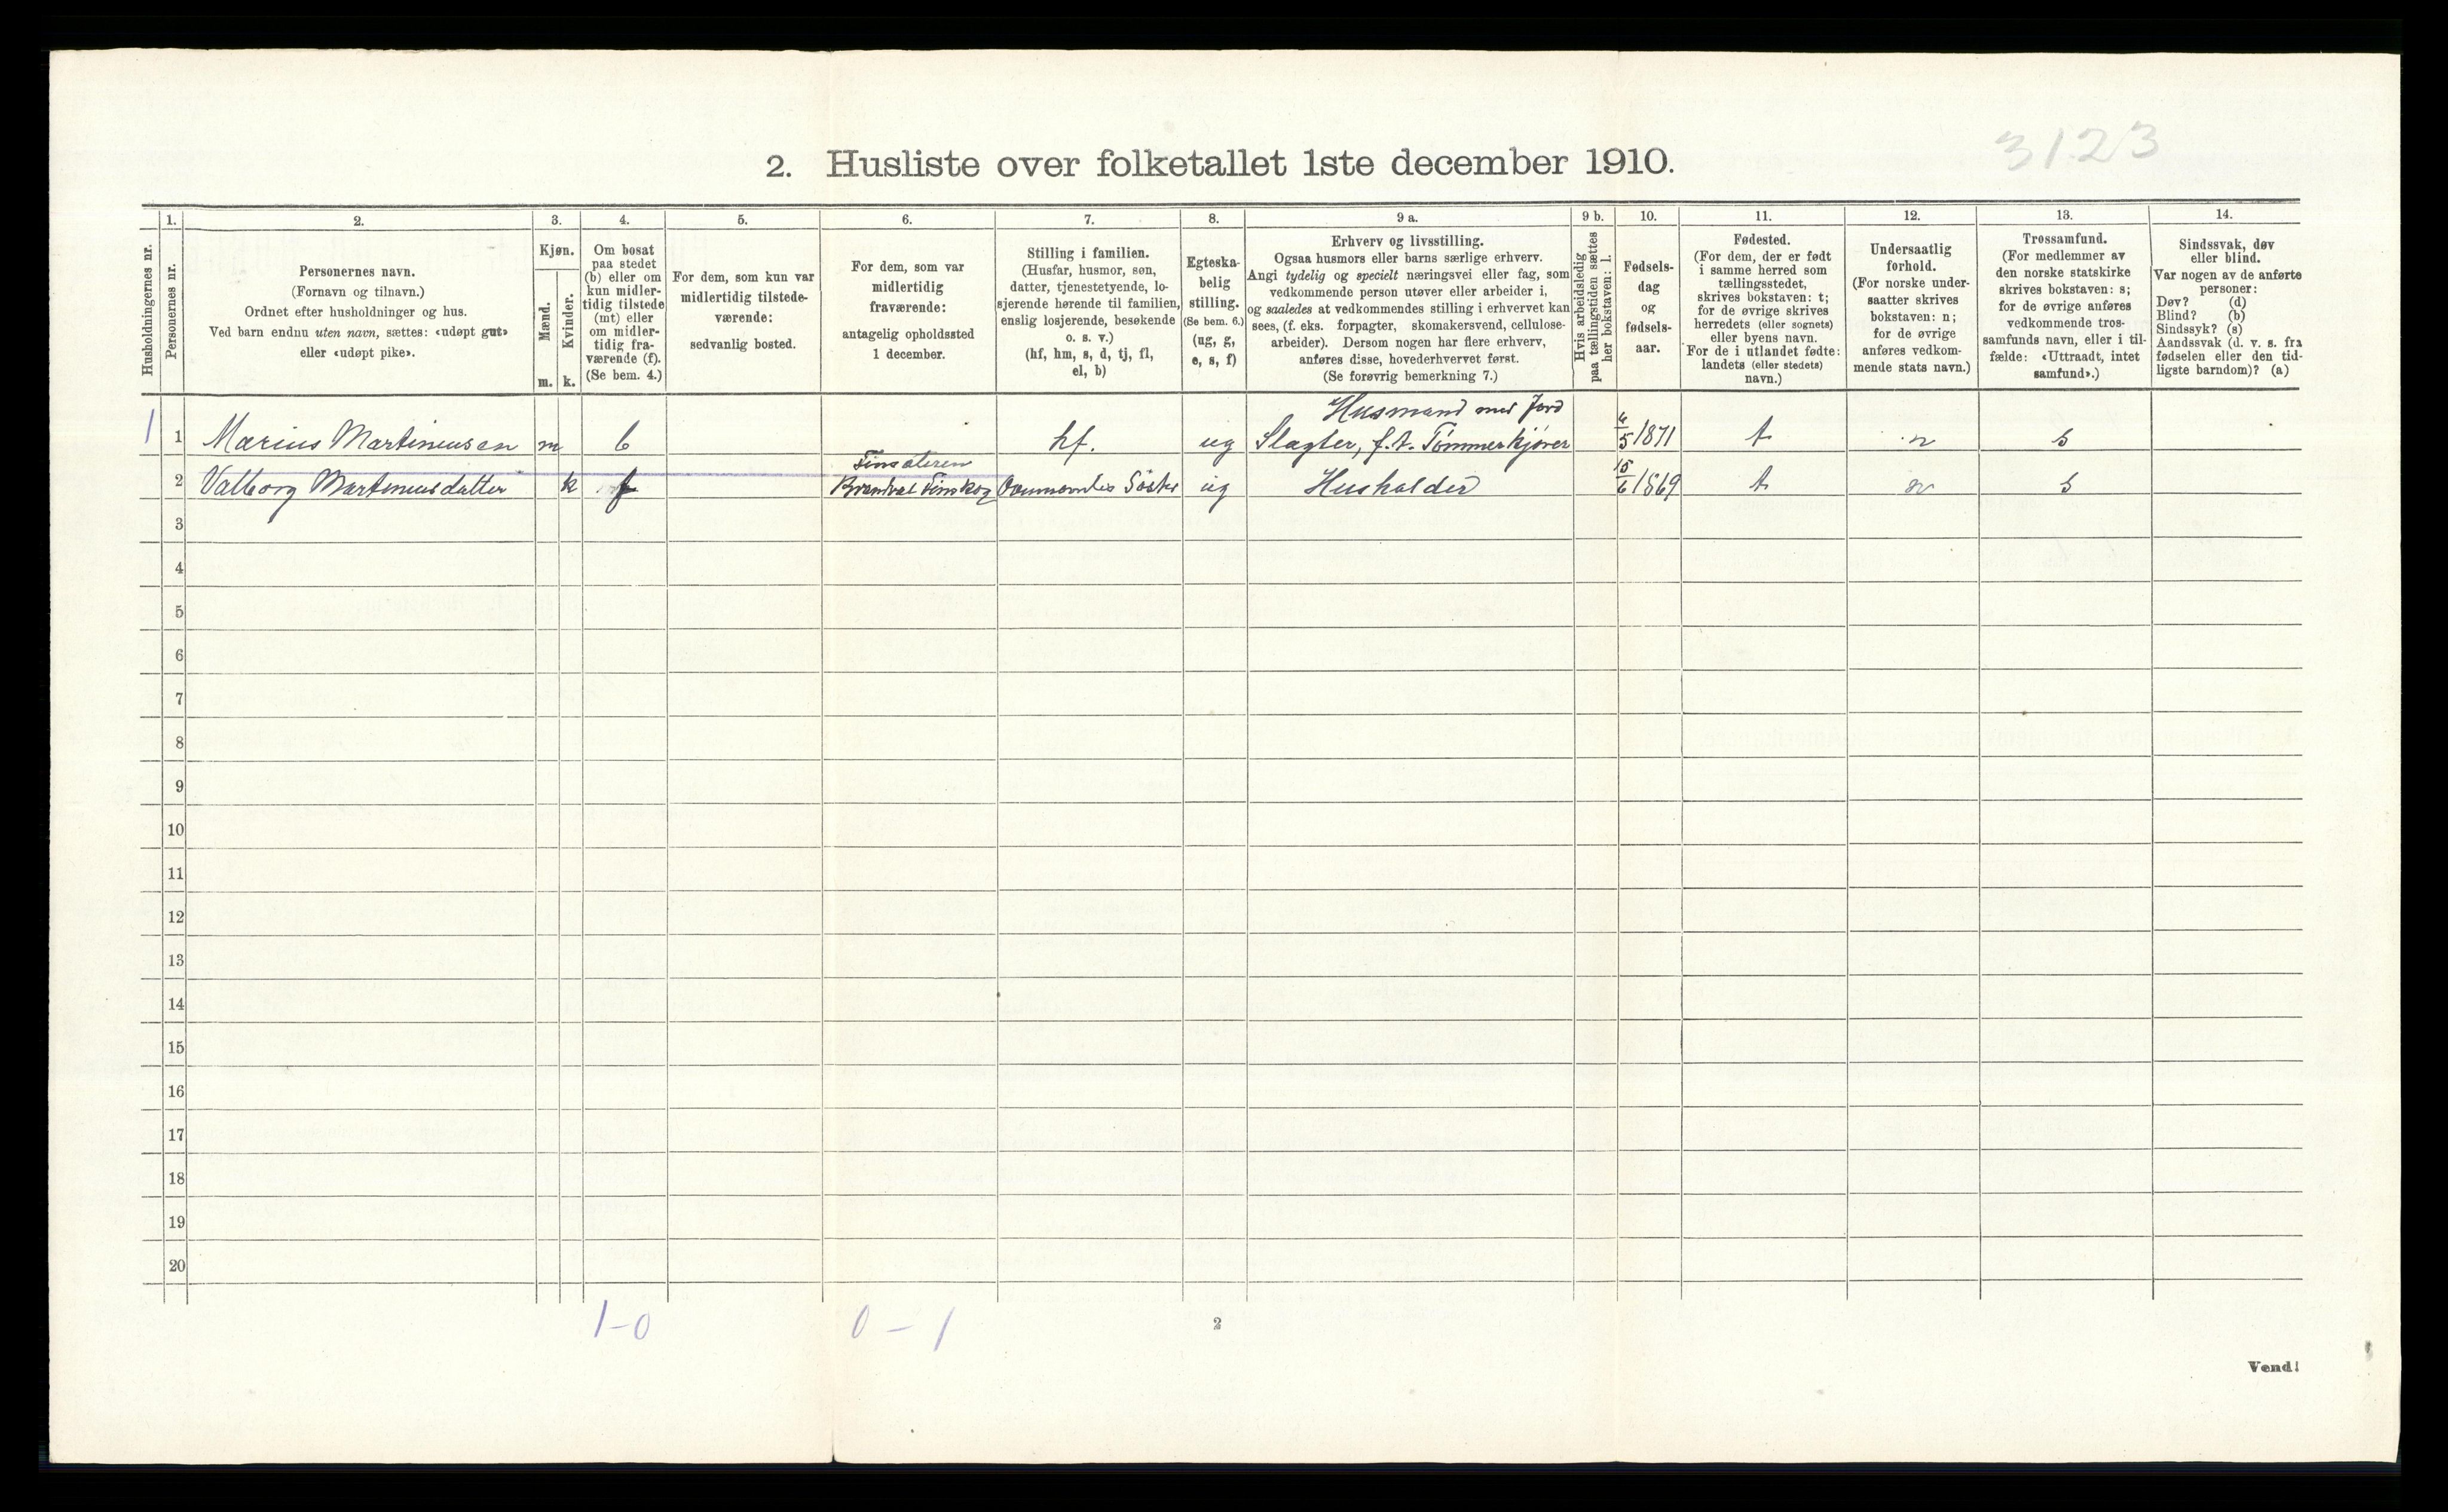 3123
2. Husliste over folketallet 1ste december 1910.
Husholdningernes nr.
1.
Personernes nr.
2.
Personernes navn.
(Fornavn og tilnavn.)
Ordnet efter husholdninger og hus.
Ved barn endnu uten navn, sættes: «udøpt gut»
eller «udøpt pike».
3.
Kjøn.
Mænd.
m.
Kvinder.
k.
4.
Om bosat
paa stedet
(b) eller om
kun midler-
tidig tilstede
(mt) eller
om midler-
tidig fra-
værende (f).
(Se bem. 4.)
5.
For dem, som kun var
midlertidig tilstede-
værende:
sedvanlig bosted.
6.
For dem, som var
midlertidig
fraværende:
antagelig opholdssted
1 december.
7.
Stilling i familien.
(Husfar, husmor, søn,
datter, tjenestetyende, lo-
sjerende hørende til familien,
enslig losjerende, besøkende
o. s. v.)
(hf, hm, s, d, tj, fl,
el, b)
8.
Egteska-
belig
stilling.
(Se bem. 6.)
(ug, g,
e, s, f)
9 a.
Erhverv og livsstilling.
Ogsaa husmors eller barns særlige erhverv.
Angi tydelig og specielt næringsvei eller fag, som
vedkommende person utøver eller arbeider i,
og saaledes at vedkommendes stilling i erhvervet kan
sees, (f. eks. forpagter, skomakersvend, cellulose-
arbeider). Dersom nogen har flere erhverv,
anføres disse, hovederhvervet først.
(Se forøvrig bemerkning 7.)
9 b.
Hvis arbeidsledig
paa tællingstiden sættes
her bokstaven: l.
10.
Fødsels-
dag
og
fødsels-
aar.
11.
Fødested.
(For dem, der er født
i samme herred som
tællingsstedet,
skrives bokstaven: t;
for de øvrige skrives
herredets (eller sognets)
eller byens navn.
For de i utlandet fødte:
landets (eller stedets)
navn.)
12.
Undersaatlig
forhold.
(For norske under-
saatter skrives
bokstaven: n;
for de øvrige
anføres vedkom-
mende stats navn.)
13.
Trossamfund.
(For medlemmer av
den norske statskirke
skrives bokstaven: s;
for de øvrige anføres
vedkommende tros-
samfunds navn, eller i til-
fælde: «Uttraadt, intet
samfund».)
14.
Sindssvak, døv
eller blind.
Var nogen av de anførte
personer:
Døv? (d)
Blind? (b)
Sindssyk? (s)
Aandssvak (d. v. s. fra
fødselen eller den tid-
ligste barndom)? (a)
Husmand med Jord
1 1 Marius Martinusen m b hf. ug Slagter, f.t. Tømmerkjører 6/5 1871 t n s
2 Valborg Martinusdatter k f Brandval Finskog Søster ug Husholder 15/6 1869 t n s
3
4
5
6
7
8
9
10
11
12
13
14
15
16
17
18
19
20
1-0 0-1
2
Vend!